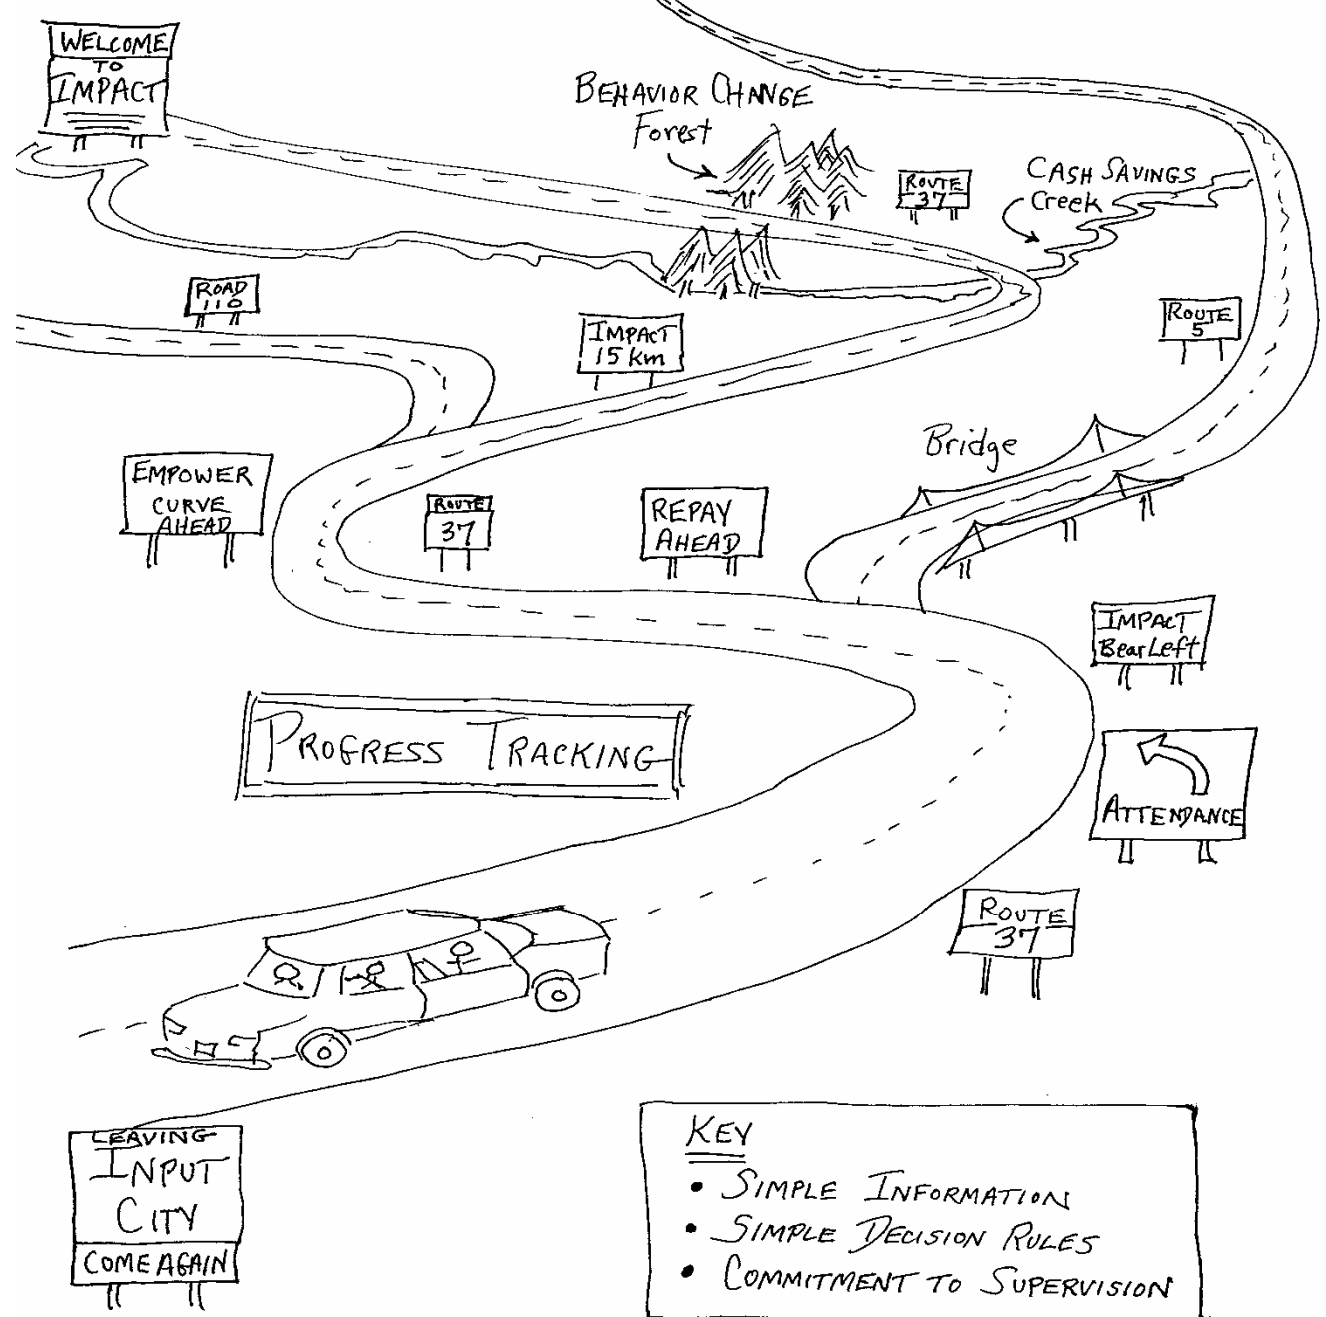 WELCOME
TO
IMPACT
BEHAVIOR CHANGE
Forest
ROUTE
37
CASH SAVINGS
Creek
ROAD
110
IMPACT
15 km
ROUTE
5
EMPOWER
CURVE
AHEAD
ROUTE
37
REPAY
AHEAD
Bridge
IMPACT
Bear Left
PROGRESS TRACKING
ATTENDANCE
ROUTE
37
LEAVING
INPUT
CITY
COME AGAIN
KEY
• SIMPLE INFORMATION
• SIMPLE DECISION RULES
• COMMITMENT TO SUPERVISION